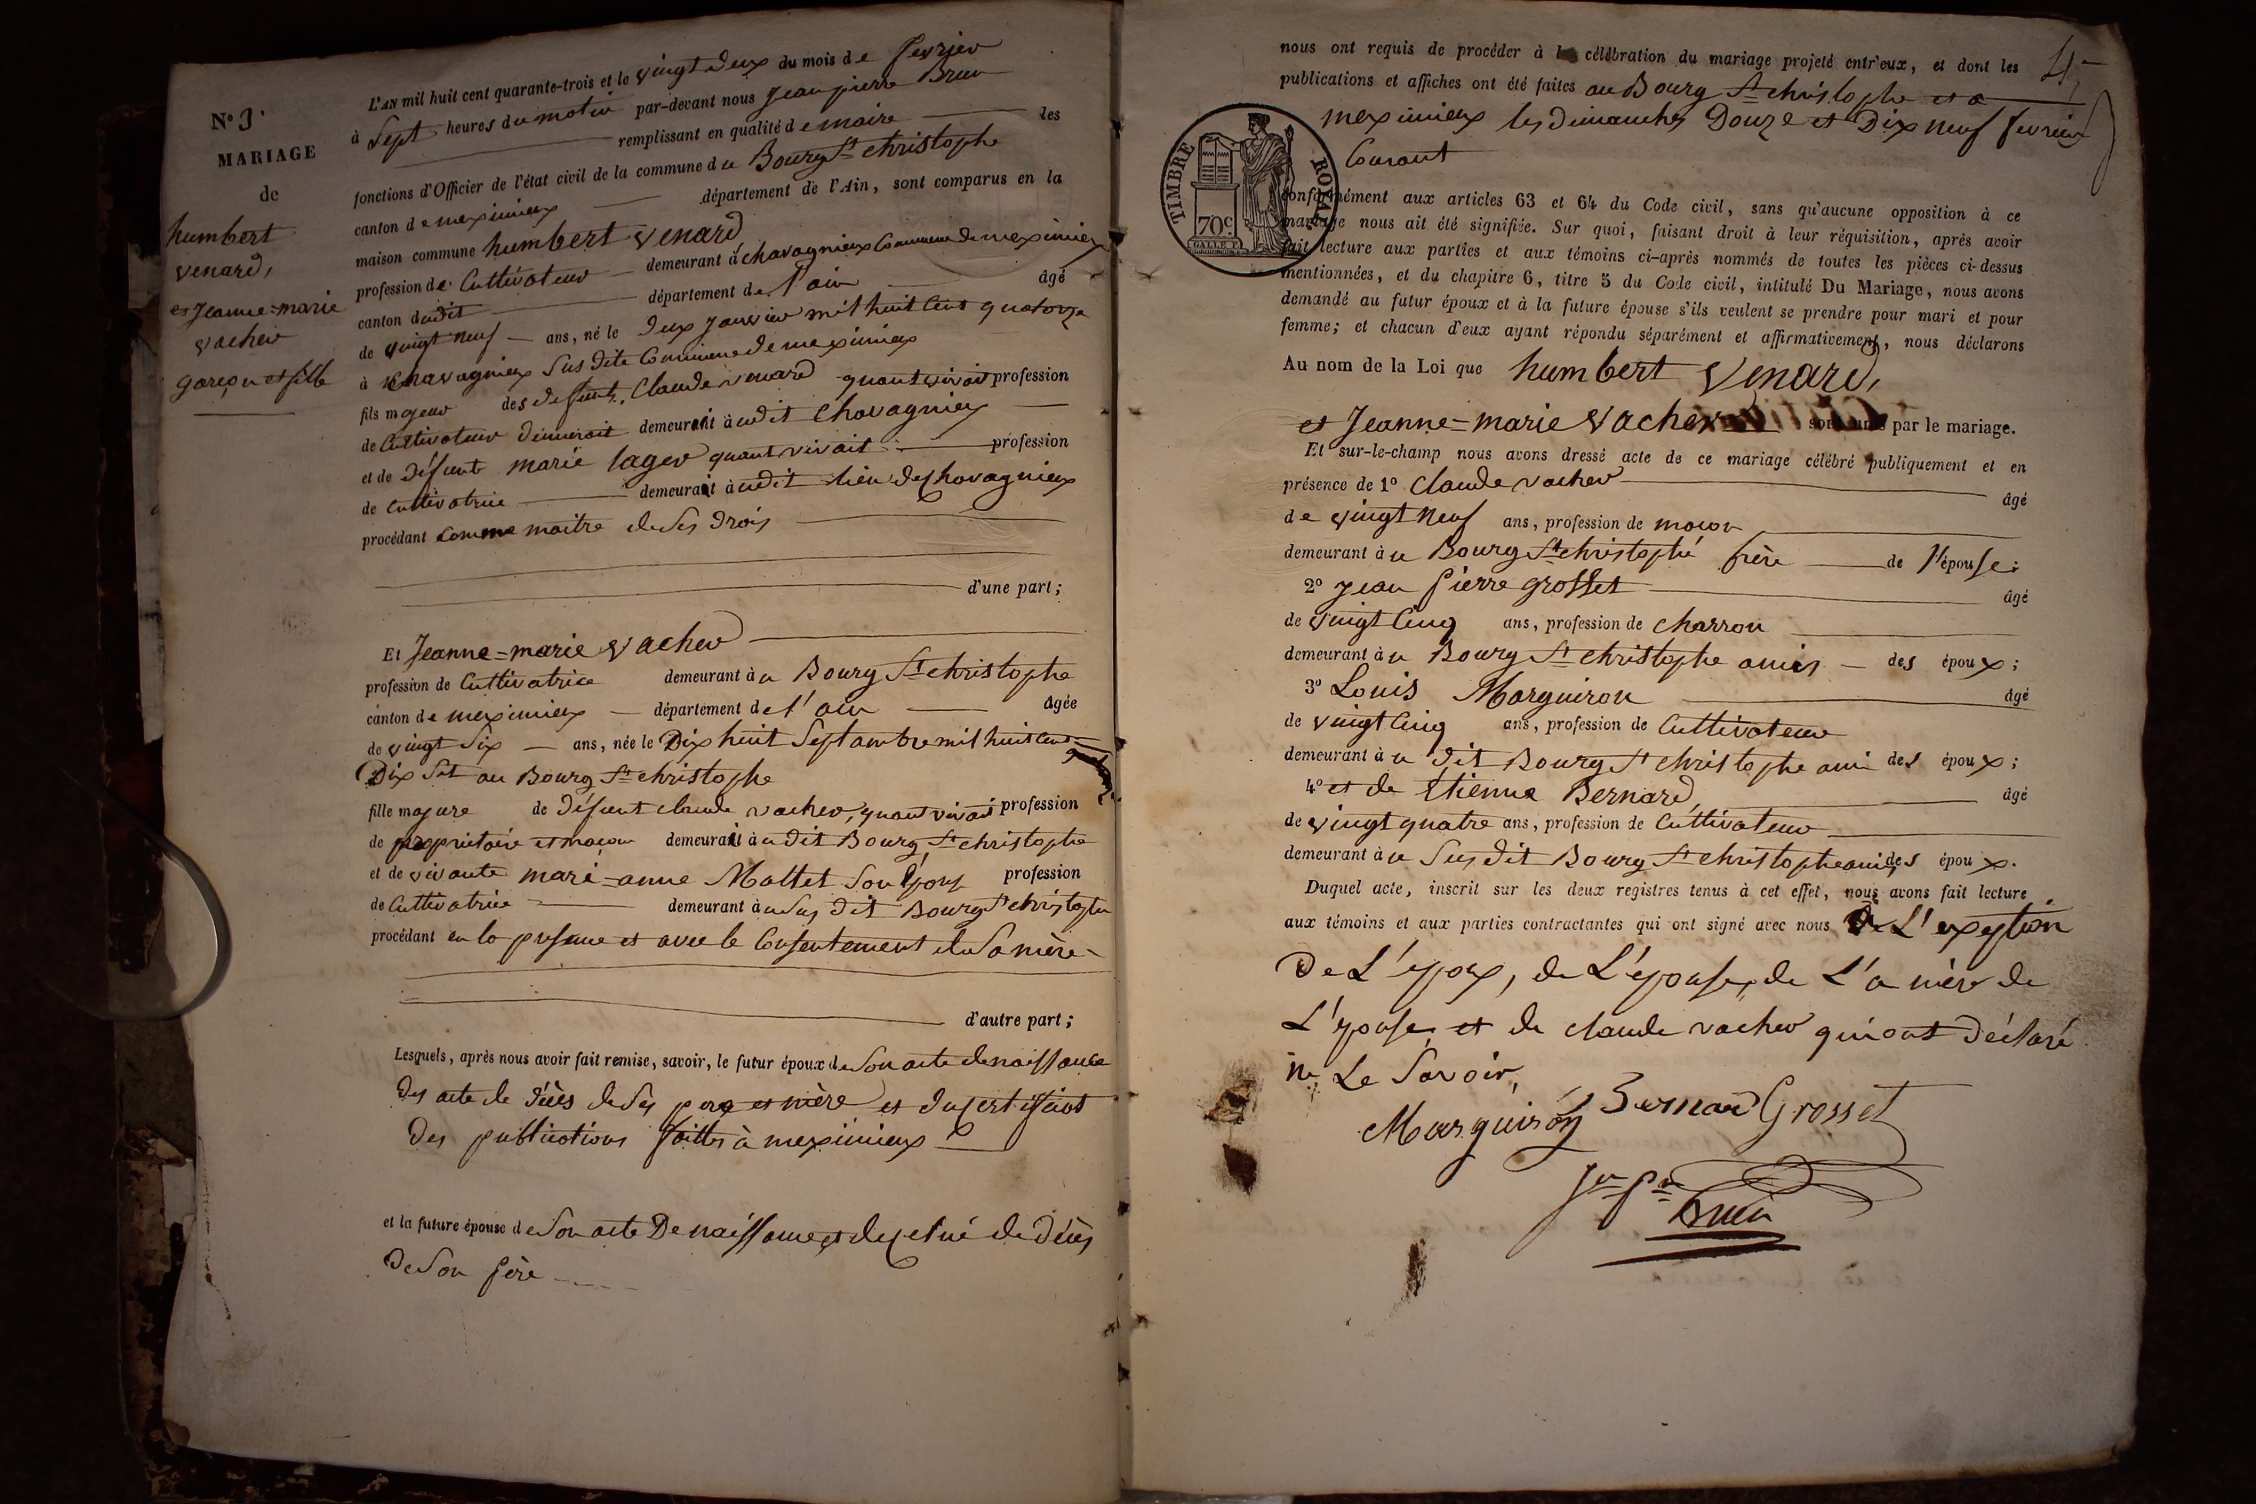 N° 3.
MARIAGE
de
humbert
venard,
et Jeanne=marie
vacher
garçon et fille
L'AN mil huit cent quarante-trois et le vingt deux du mois de fevrier
à Sept heures du matin par-devant nous Jean pierre Brun
remplissant en qualité de maire les
fonctions d'Officier de l'état civil de la commune du Bourg St christophe
canton de meximieux département de l'Ain, sont comparus en la
maison commune humbert venard
profession de Cultivateur demeurant à chavagnieux Commune de meximieux
canton dudit département de l'ain âgé
de vingt neuf ans, né le deux janvier mil huit Cent quatorze
à chavagnieux Sus dite Commune de meximieux
fils majeur des defunts Claude venard quant vivait profession
de Cultivateur demeurait demeurant à udit chavagnieux
et de défunte marie lager quant vivait profession
de Cultivatrice demeurait à udit lieu de chavagnieux
procédant Comme maitre de Ses Drois
d'une part;
Et Jeanne=marie vacher
profession de Cultivatrice demeurant à u Bourg St christophe
canton de meximieux département de l'ain âgée
de vingt Six ans, née le Dix huit Septambre mil huit Cent
Dix Set au Bourg St christophe
fille majure de défunt claude vacher, quant vivait profession
de propriétaire et maçon demeurait à udit Bourg St christophe
et de vivante marie=anne Mottet Son Epouse profession
de Cultivatrice demeurant à u Sus dit Bourg St christophe
procédant en la presence et avec le Consentement de Sa mère
d'autre part;
Lesquels, après nous avoir fait remise, savoir, le futur époux de Son acte de naissance
des acte de décès de Ses pere et mère et du certificat
des publications faittes à meximieux
et la future épouse de Son acte De naissance et de celui de Décès
De Son père
4
nous ont requis de procéder à la célébration du mariage projeté entr'eux, et dont les
publications et affiches ont été faites au Bourg St christophe et a
meximieux les dimanches Douze et Dix neuf fevrier
Courant
TIMBRE ROYAL
70c
conformément aux articles 63 et 64 du Code civil, sans qu'aucune opposition à ce
mariage nous ait été signifiée. Sur quoi, faisant droit à leur réquisition, après avoir
fait lecture aux parties et aux témoins ci-après nommés de toutes les pièces ci-dessus
mentionnées, et du chapitre 6, titre 5 du Code civil, intitulé Du Mariage, nous avons
demandé au futur époux et à la future épouse s'ils veulent se prendre pour mari et pour
femme; et chacun d'eux ayant répondu séparément et affirmativement, nous déclarons
Au nom de la Loi que humbert venard,
et Jeanne=marie vacher sont unis par le mariage.
Et sur-le-champ nous avons dressé acte de ce mariage célébré publiquement et en
présence de 1° Claude vacher âgé
de vingt neuf ans, profession de maçon
demeurant à u Bourg St christophe frère de l'épouse;
2° Jean Pierre Grosset âgé
de vingt Cinq ans, profession de charron
demeurant à u Bourg St christophe amis des époux;
3° Louis Marguiron âgé
de vingt Cinq ans, profession de Cultivateur
demeurant à u dit Bourg St christophe ami des époux;
4° et de Etienne Bernard, âgé
de vingt quatre ans, profession de Cultivateur
demeurant à u Sus dit Bourg St christophe ami des époux.
Duquel acte, inscrit sur les deux registres tenus à cet effet, nous avons fait lecture
aux témoins et aux parties contractantes qui ont signé avec nous à L'exeption
De L'epoux, de L'epouse, de L'a mère de
L'epouse, et de claude vacher qui ont déclaré
ne Le Savoir,
Marguiron Bernard Grosset
Jn Pre
Brun